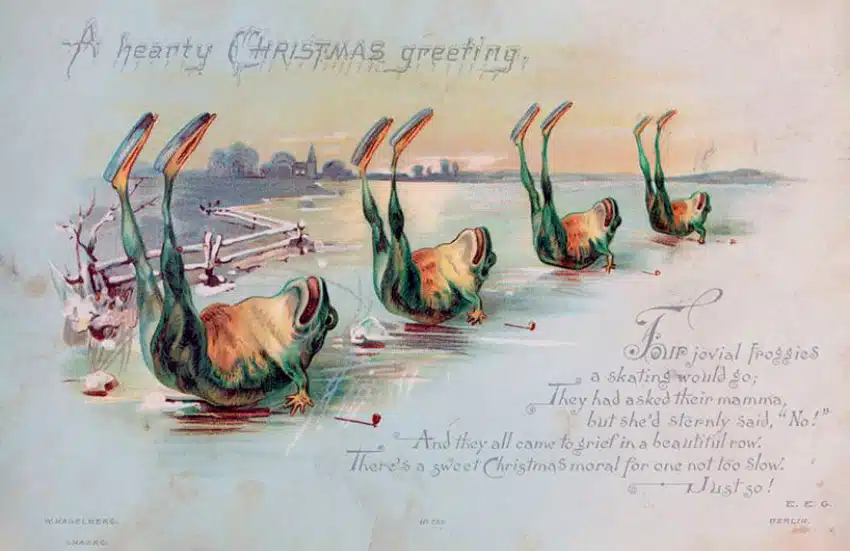 A hearty CHRISTMAS greeting.
Four jovial froggies
a skating would go;
They had asked their mamma,
but she'd sternly said, "No!"
And they all came to grief in a beautiful row.
There's a sweet Christmas moral for one not too slow.
Just so!
E. E. G.
W. HAGELBERG.
BERLIN.